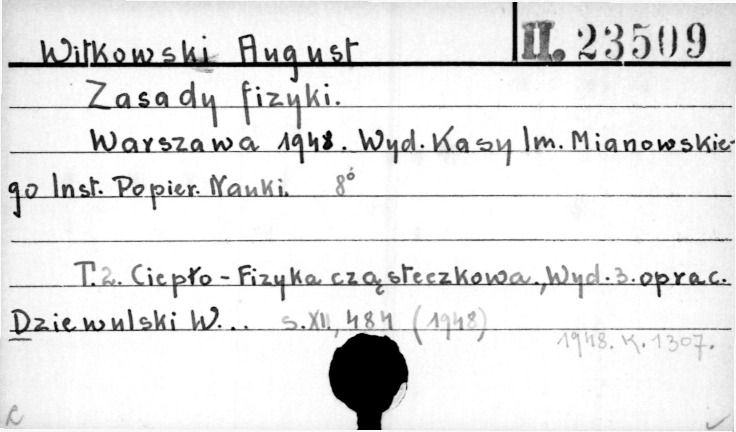 Witkowski August II. 23509
Zasady fizyki.
Warszawa 1948. Wyd. Kasy Im. Mianowskie-
go Inst. Popier. Nauki. 8°
T.2. Ciepło - Fizyka cząsteczkowa., Wyd. 3. oprac.
Dziewulski W... s. XII, 484 (1948)
1948. K. 1307.